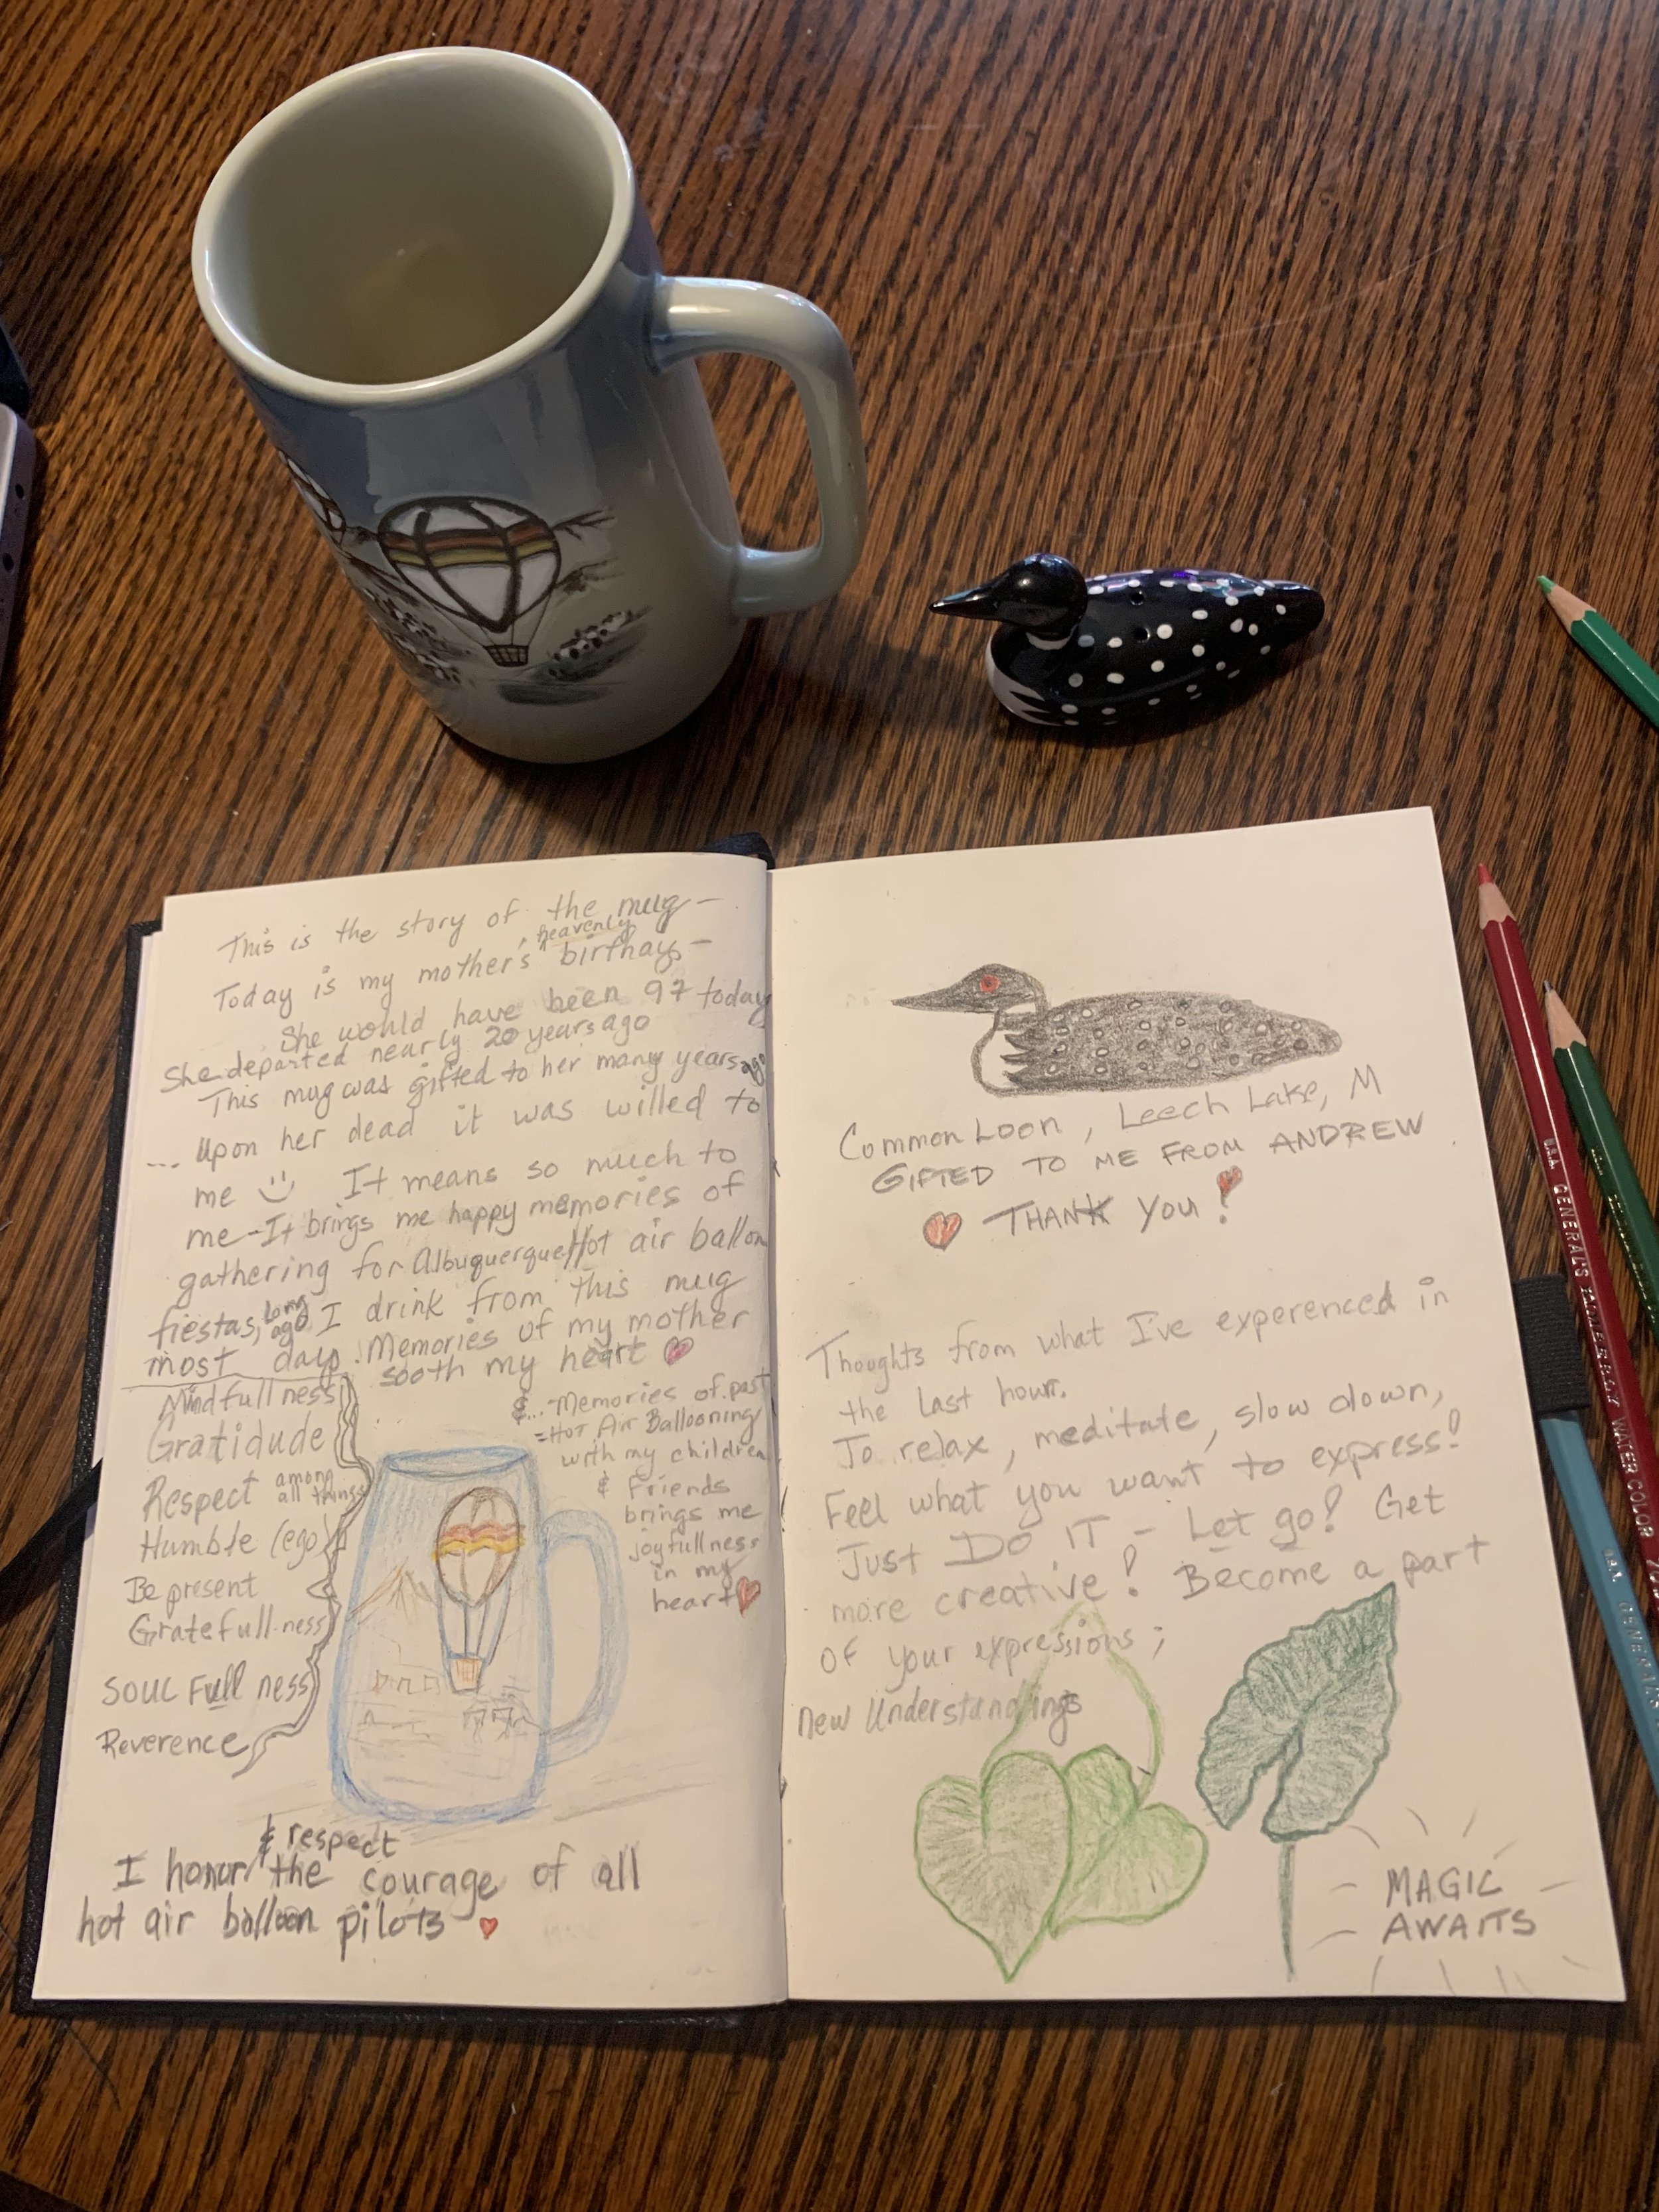 This is the story of the mug –
Today is my mother's, ^heavenly birthay –
She would have been 97 today
She departed nearly 20 years ago
This mug was gifted to her many years ago
... Upon her dead it was willed to
me It means so much to
me – It brings me happy memories of
gathering for Albuquerque Hot air balloon
fiestas, long ago I drink from this mug
most days! Memories of my mother
sooth my heart
Mindfullness
Gratidude
Respect among all things
Humble (ego)
Be present
Gratefull-ness
SOUL Full ness
Reverence
&...-Memories of past
=Hot Air Ballooning
with my children
& Friends
brings me
joyfullness
in my
heart
& respect
I honor the courage of all
hot air balloon pilots
Common Loon, Leech Lake, M
GIFTED TO ME FROM ANDREW
THANK YOU!
Thoughts from what I've experenced in
the last hour.
To relax, meditate, slow down,
Feel what you want to express!
Just DO IT – Let go! Get
more creative! Become a part
of your expressions;
new Understandings
MAGIC
AWAITS
U.S.A. GENERAL'S KIMBERLY WATER COLOR
U.S.A. GENERAL'S